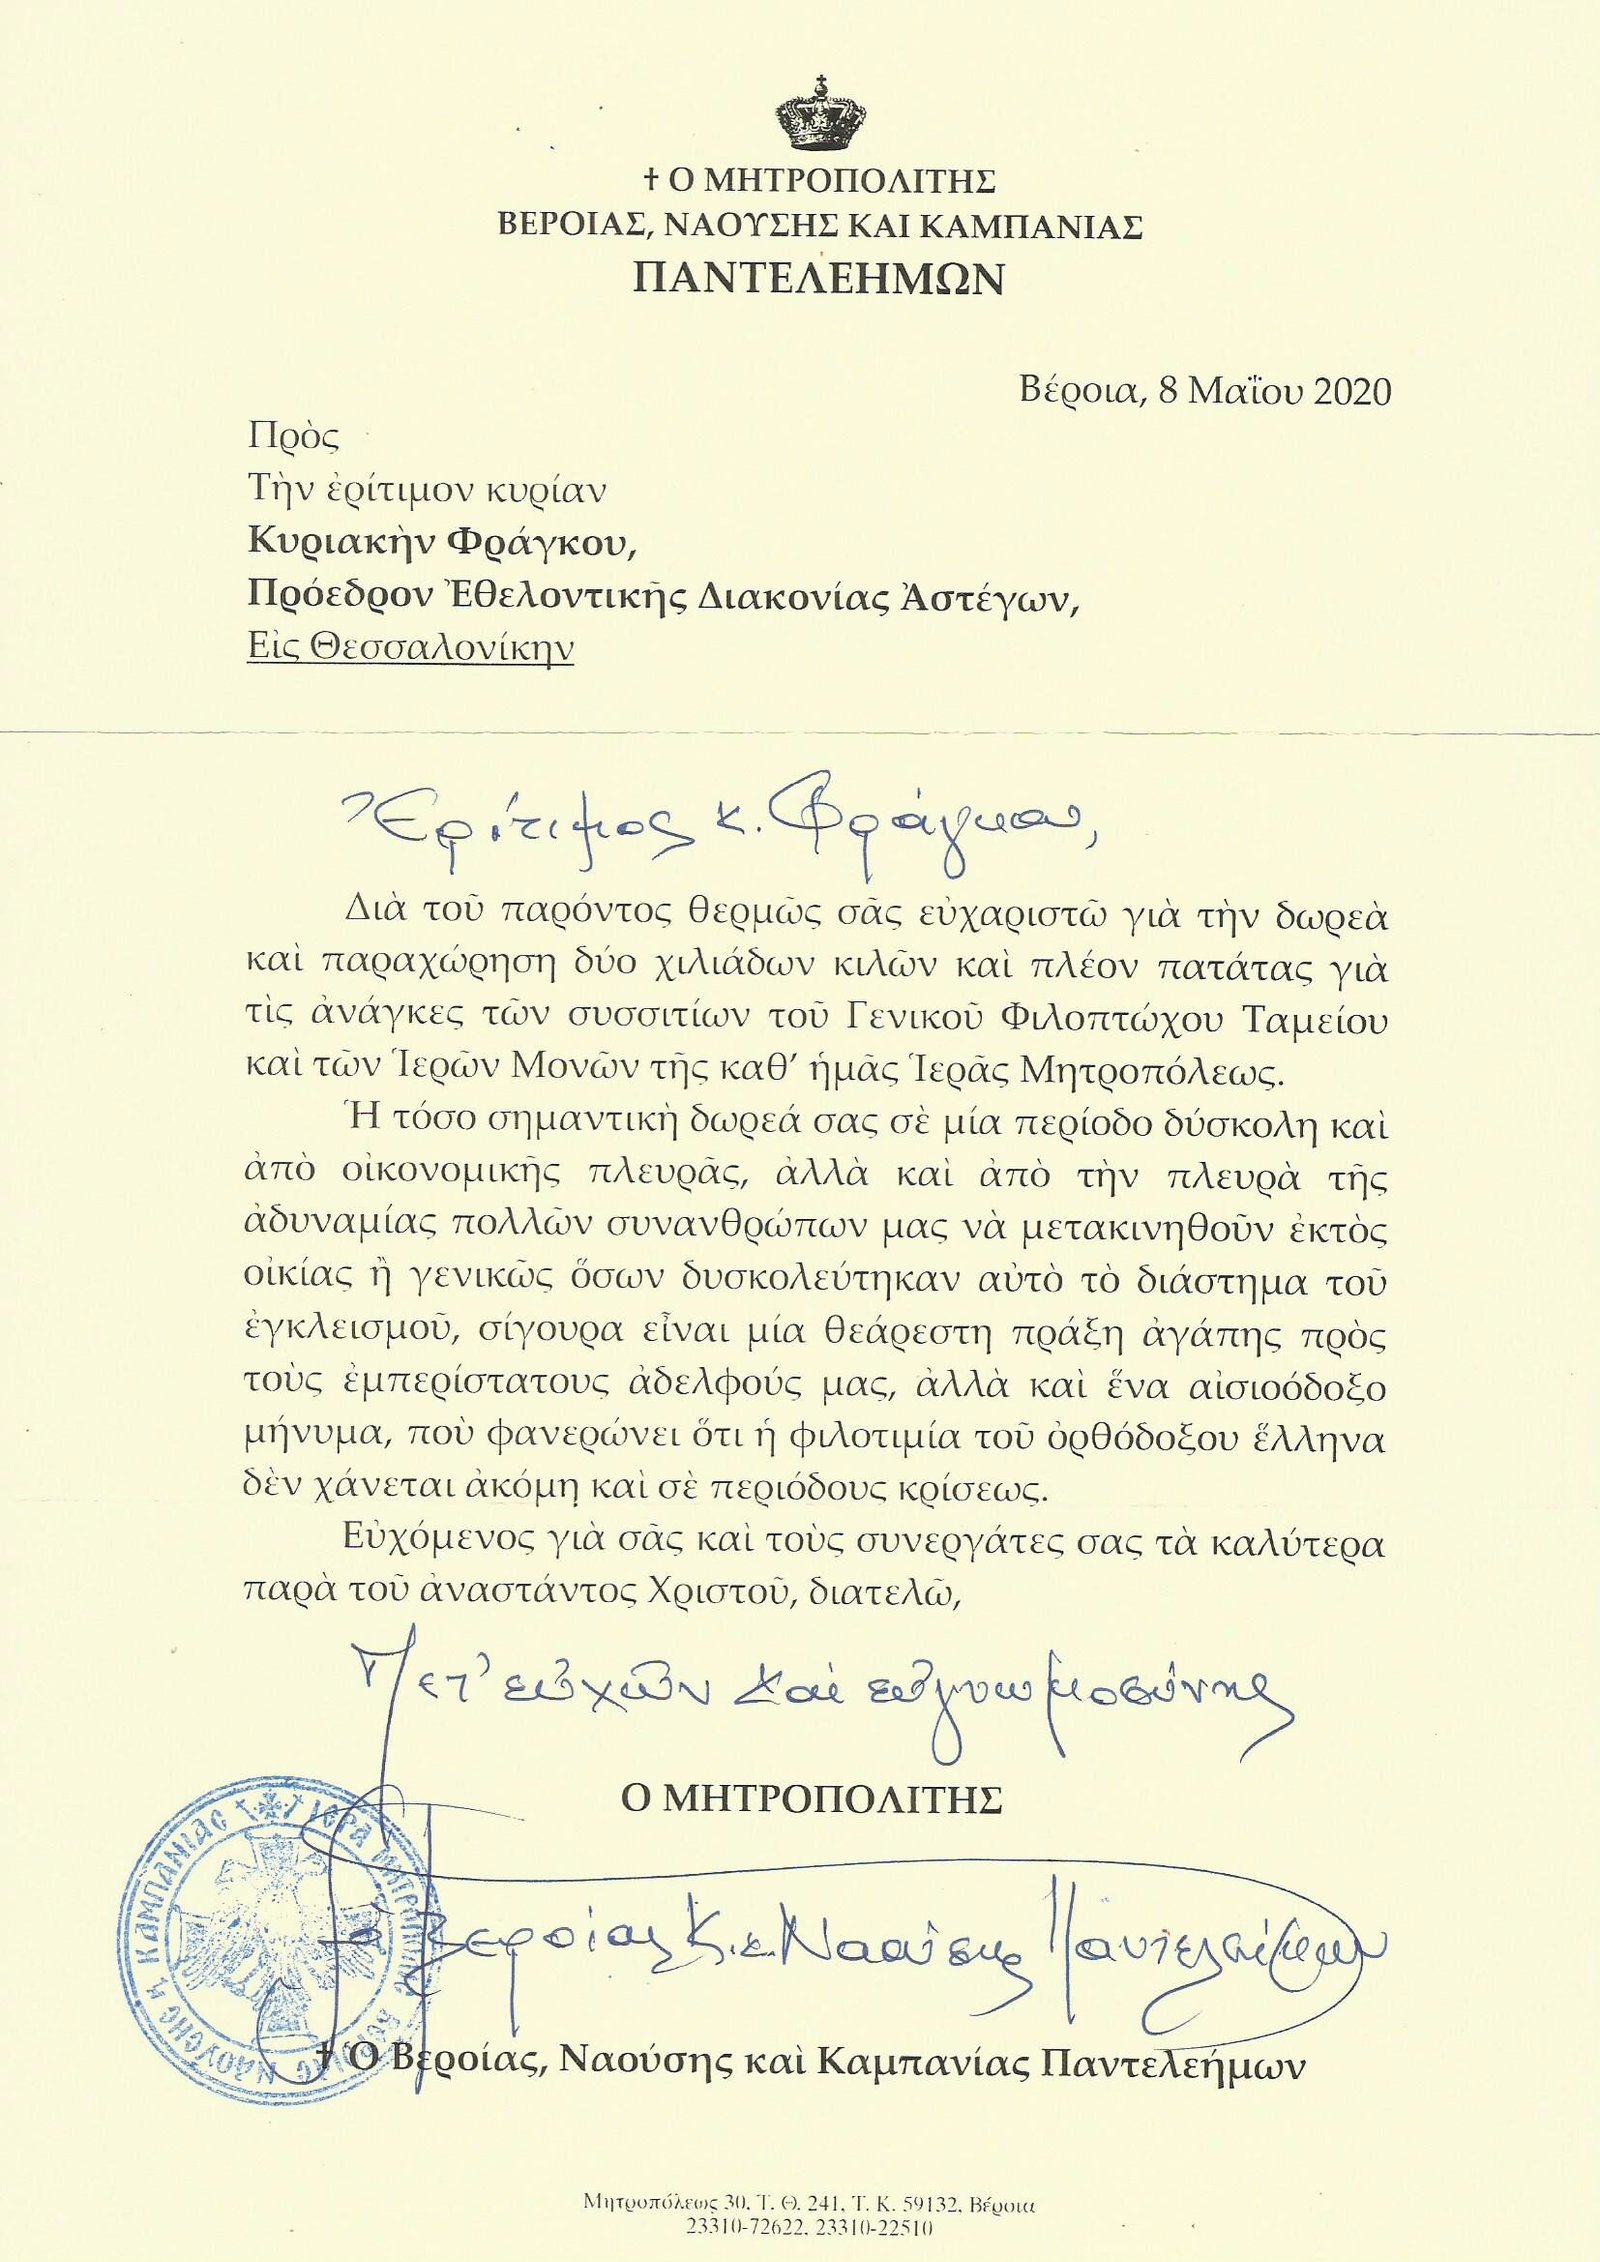 † Ο ΜΗΤΡΟΠΟΛΙΤΗΣ
ΒΕΡΟΙΑΣ, ΝΑΟΥΣΗΣ ΚΑΙ ΚΑΜΠΑΝΙΑΣ
ΠΑΝΤΕΛΕΗΜΩΝ
Βέροια, 8 Μαΐου 2020
Πρὸς
Τὴν ἐρίτιμον κυρίαν
Κυριακὴν Φράγκου,
Πρόεδρον Ἐθελοντικῆς Διακονίας Ἀστέγων,
Εἰς Θεσσαλονίκην
Ἐρίτιμος κ. Φράγκου,
Διὰ τοῦ παρόντος θερμῶς σᾶς εὐχαριστῶ γιὰ τὴν δωρεὰ
καὶ παραχώρηση δύο χιλιάδων κιλῶν καὶ πλέον πατάτας γιὰ
τὶς ἀνάγκες τῶν συσσιτίων τοῦ Γενικοῦ Φιλοπτώχου Ταμείου
καὶ τῶν Ἱερῶν Μονῶν τῆς καθ’ ἡμᾶς Ἱερᾶς Μητροπόλεως.
Ἡ τόσο σημαντικὴ δωρεά σας σὲ μία περίοδο δύσκολη καὶ
ἀπὸ οἰκονομικῆς πλευρᾶς, ἀλλὰ καὶ ἀπὸ τὴν πλευρὰ τῆς
ἀδυναμίας πολλῶν συνανθρώπων μας νὰ μετακινηθοῦν ἐκτὸς
οἰκίας ἢ γενικῶς ὅσων δυσκολεύτηκαν αὐτὸ τὸ διάστημα τοῦ
ἐγκλεισμοῦ, σίγουρα εἶναι μία θεάρεστη πράξη ἀγάπης πρὸς
τοὺς ἐμπερίστατους ἀδελφούς μας, ἀλλὰ καὶ ἕνα αἰσιοόδοξο
μήνυμα, ποὺ φανερώνει ὅτι ἡ φιλοτιμία τοῦ ὀρθόδοξου ἕλληνα
δὲν χάνεται ἀκόμη καὶ σὲ περιόδους κρίσεως.
Εὐχόμενος γιὰ σᾶς καὶ τοὺς συνεργάτες σας τὰ καλύτερα
παρὰ τοῦ ἀναστάντος Χριστοῦ, διατελῶ,
Μετ’ εὐχῶν καὶ εὐγνωμοσύνης
Ο ΜΗΤΡΟΠΟΛΙΤΗΣ
ΙΕΡΑ ΜΗΤΡΟΠΟΛΙΣ ΒΕΡΟΙΑΣ ΝΑΟΥΣΗΣ Κ ΚΑΜΠΑΝΙΑΣ
Βεροίας Κ.ε. Ναούσης Παντελεήμων
† Ὁ Βεροίας, Ναούσης καὶ Καμπανίας Παντελεήμων
Μητροπόλεως 30, Τ. Θ. 241, Τ. Κ. 59132, Βέροια
23310-72622, 23310-22510